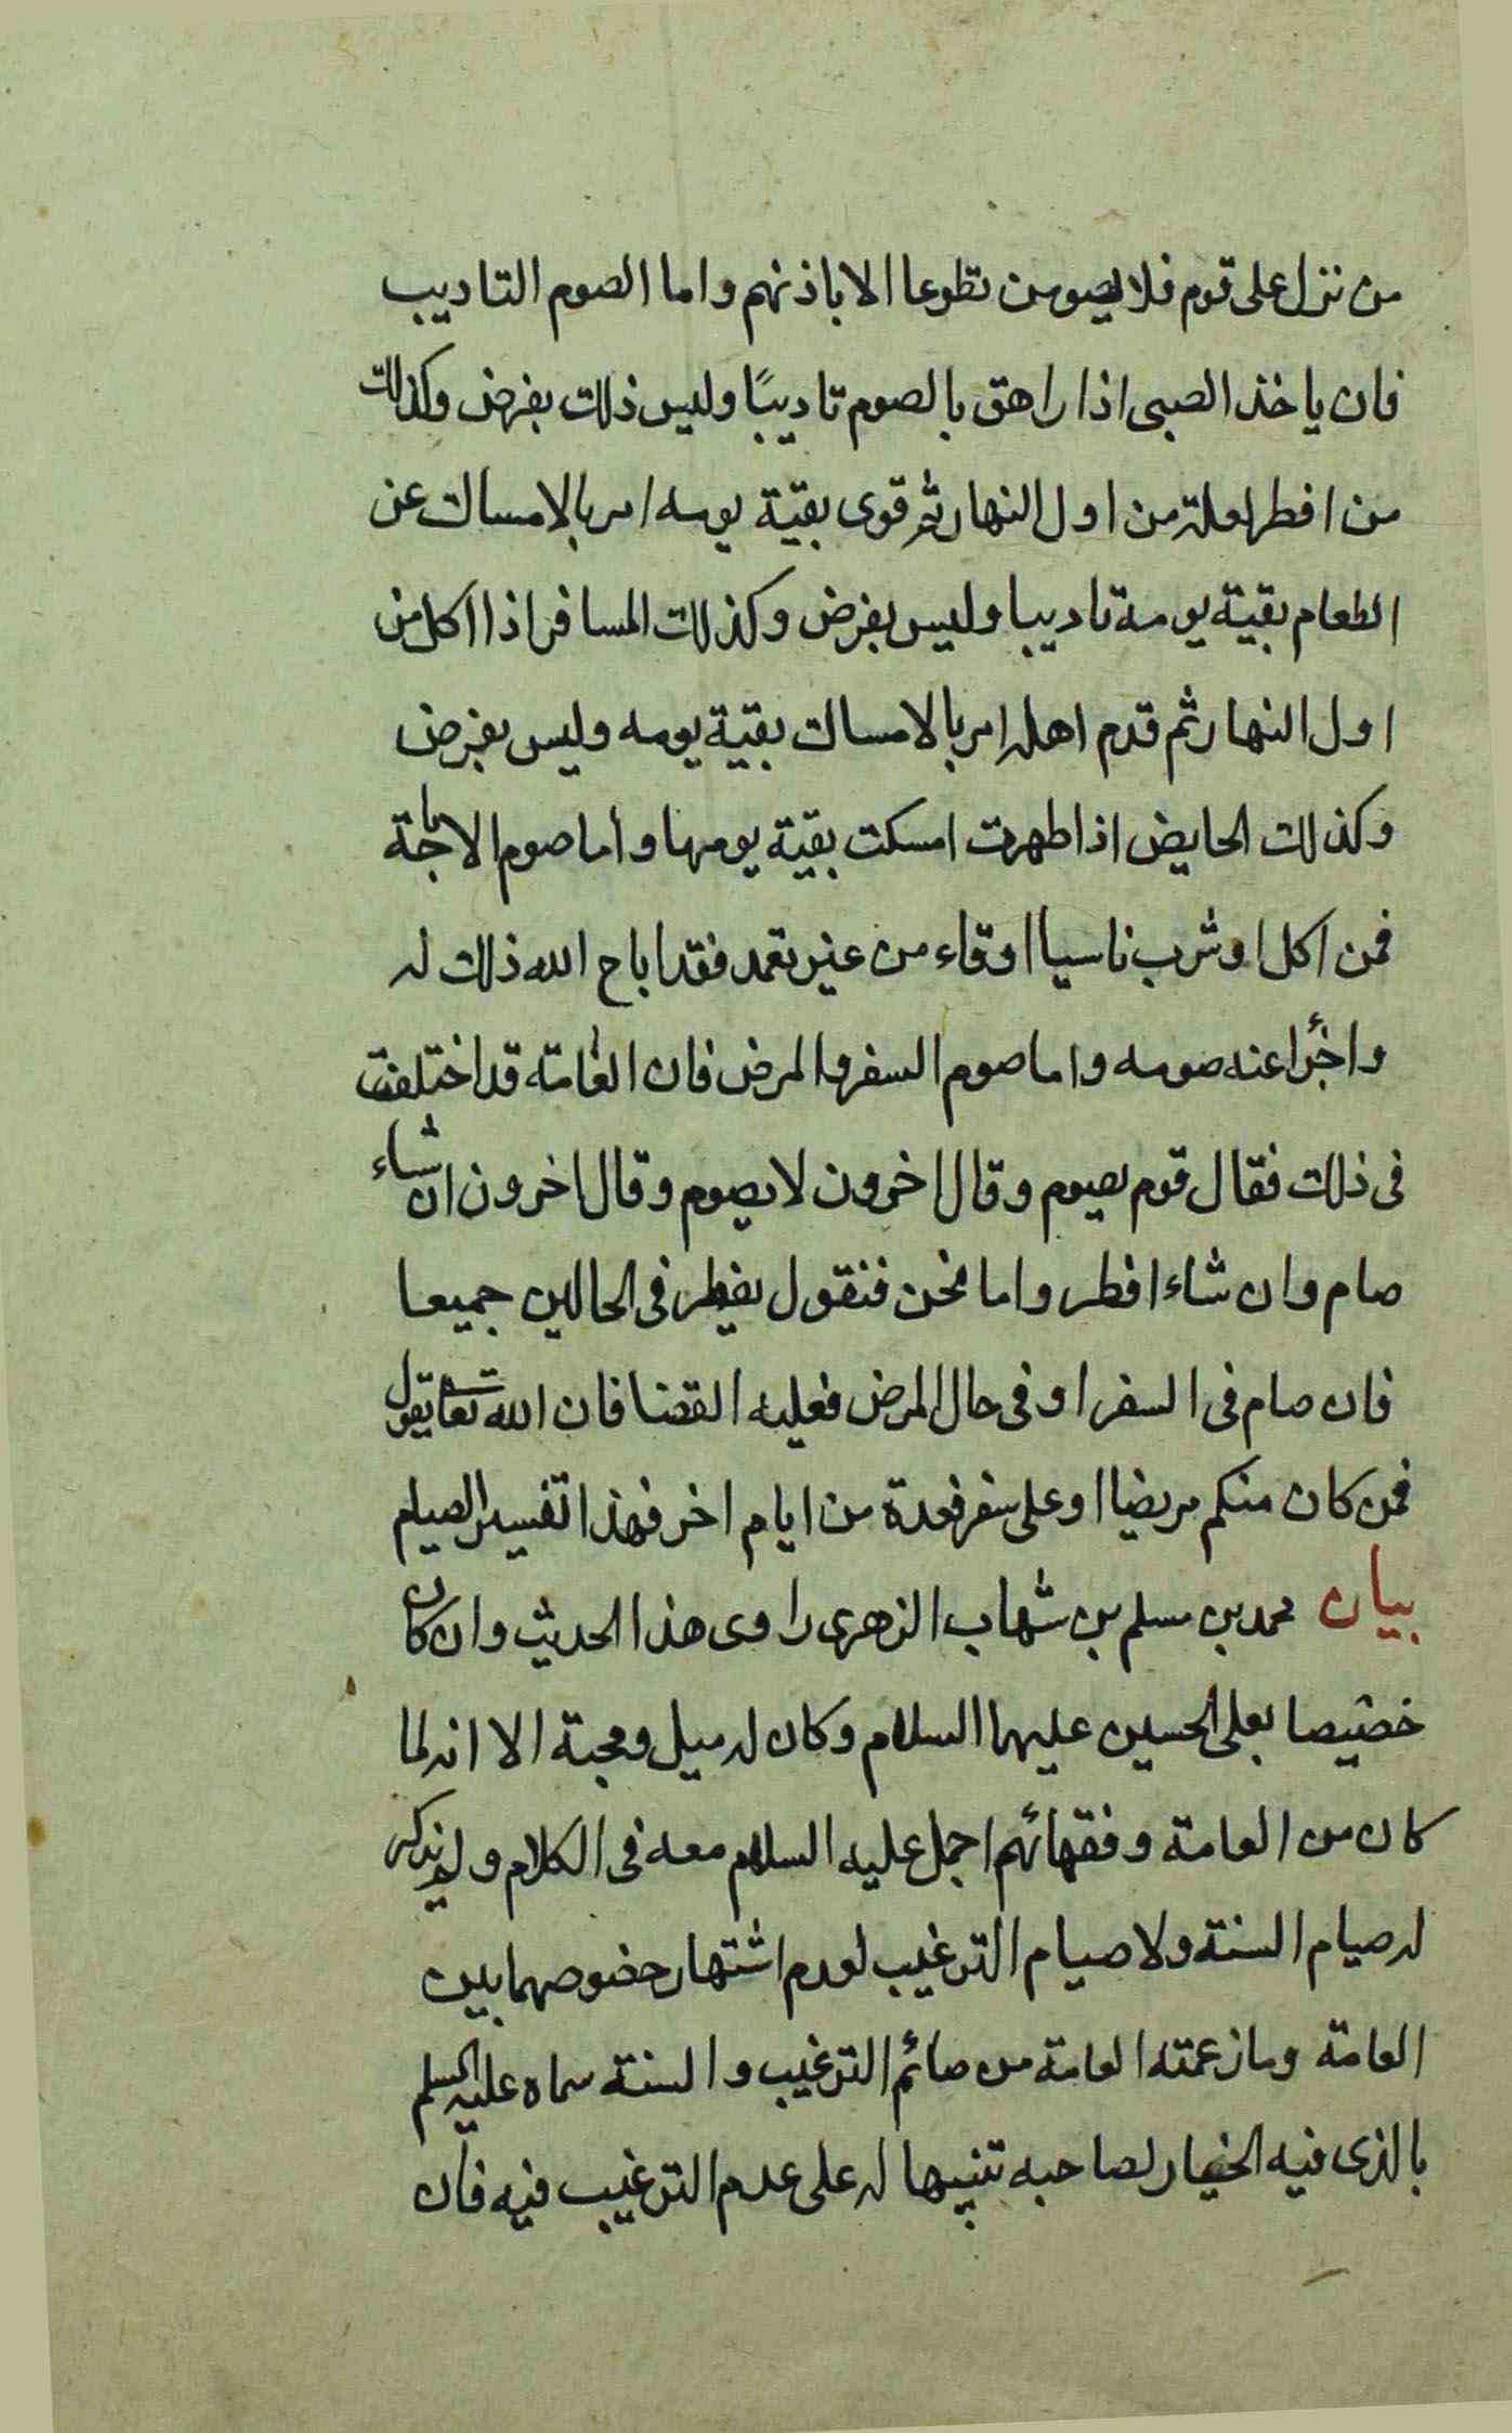 من نزل على قوم فلا يصومن تطوعا الا باذنهم و اما الصوم التاديب
فان ياخذ الصبى اذا راهق بالصوم تاديبًا وليس ذلك بفرض وكذلك
من افطر لعلة من اول النهار ثم قوى بقية يومه امر بالامساك عن
الطعام بقية يومه تاديبا وليس بفرض وكذلك المسافر اذا اكل من
اول النهار ثم قدم اهله امر بالامساك بقية يومه وليس بفرض
وكذلك الحايض اذا طهرت امسكت بقية يومها و أما صوم الاباحة
فمن اكل او شرب ناسيا او قاء من غير تعمد فقد اباح الله ذلك له
و اجزأ عنه صومه و اما صوم السفر والمرض فان العامة قد اختلفت
فى ذلك فقال قوم يصوم وقال اخرون لا يصوم وقال اخرون ان شاء
صام وان شاء افطر واما نحن فنقول يفطر فى الحالين جميعا
فان صام فى السفر او فى حال المرض فعليه القضا فان الله تعا يقول
فمن كان منكم مريضا او على سفر فعدة من ايام اخر فهذا تفسير الصيام
بيان محمد بن مسلم بن شهاب الزهرى راوى هذا الحديث وان كان
خصيصا بعلى الحسين عليهما السلام وكان له ميل ومحبة الا انه لما
كان من العامة وفقهائهم اجمل عليه السلام معه فى الكلام ولم يذكر
له صيام السنة ولا صيام الترغيب لعدم اشتهار خصوصهما بين
العامة وما زعمته العامة من صائم الترغيب والسنة سماه عليه السلم
بالذى فيه الخيار لصاحبه تنبيها له على عدم الترغيب فيه فان